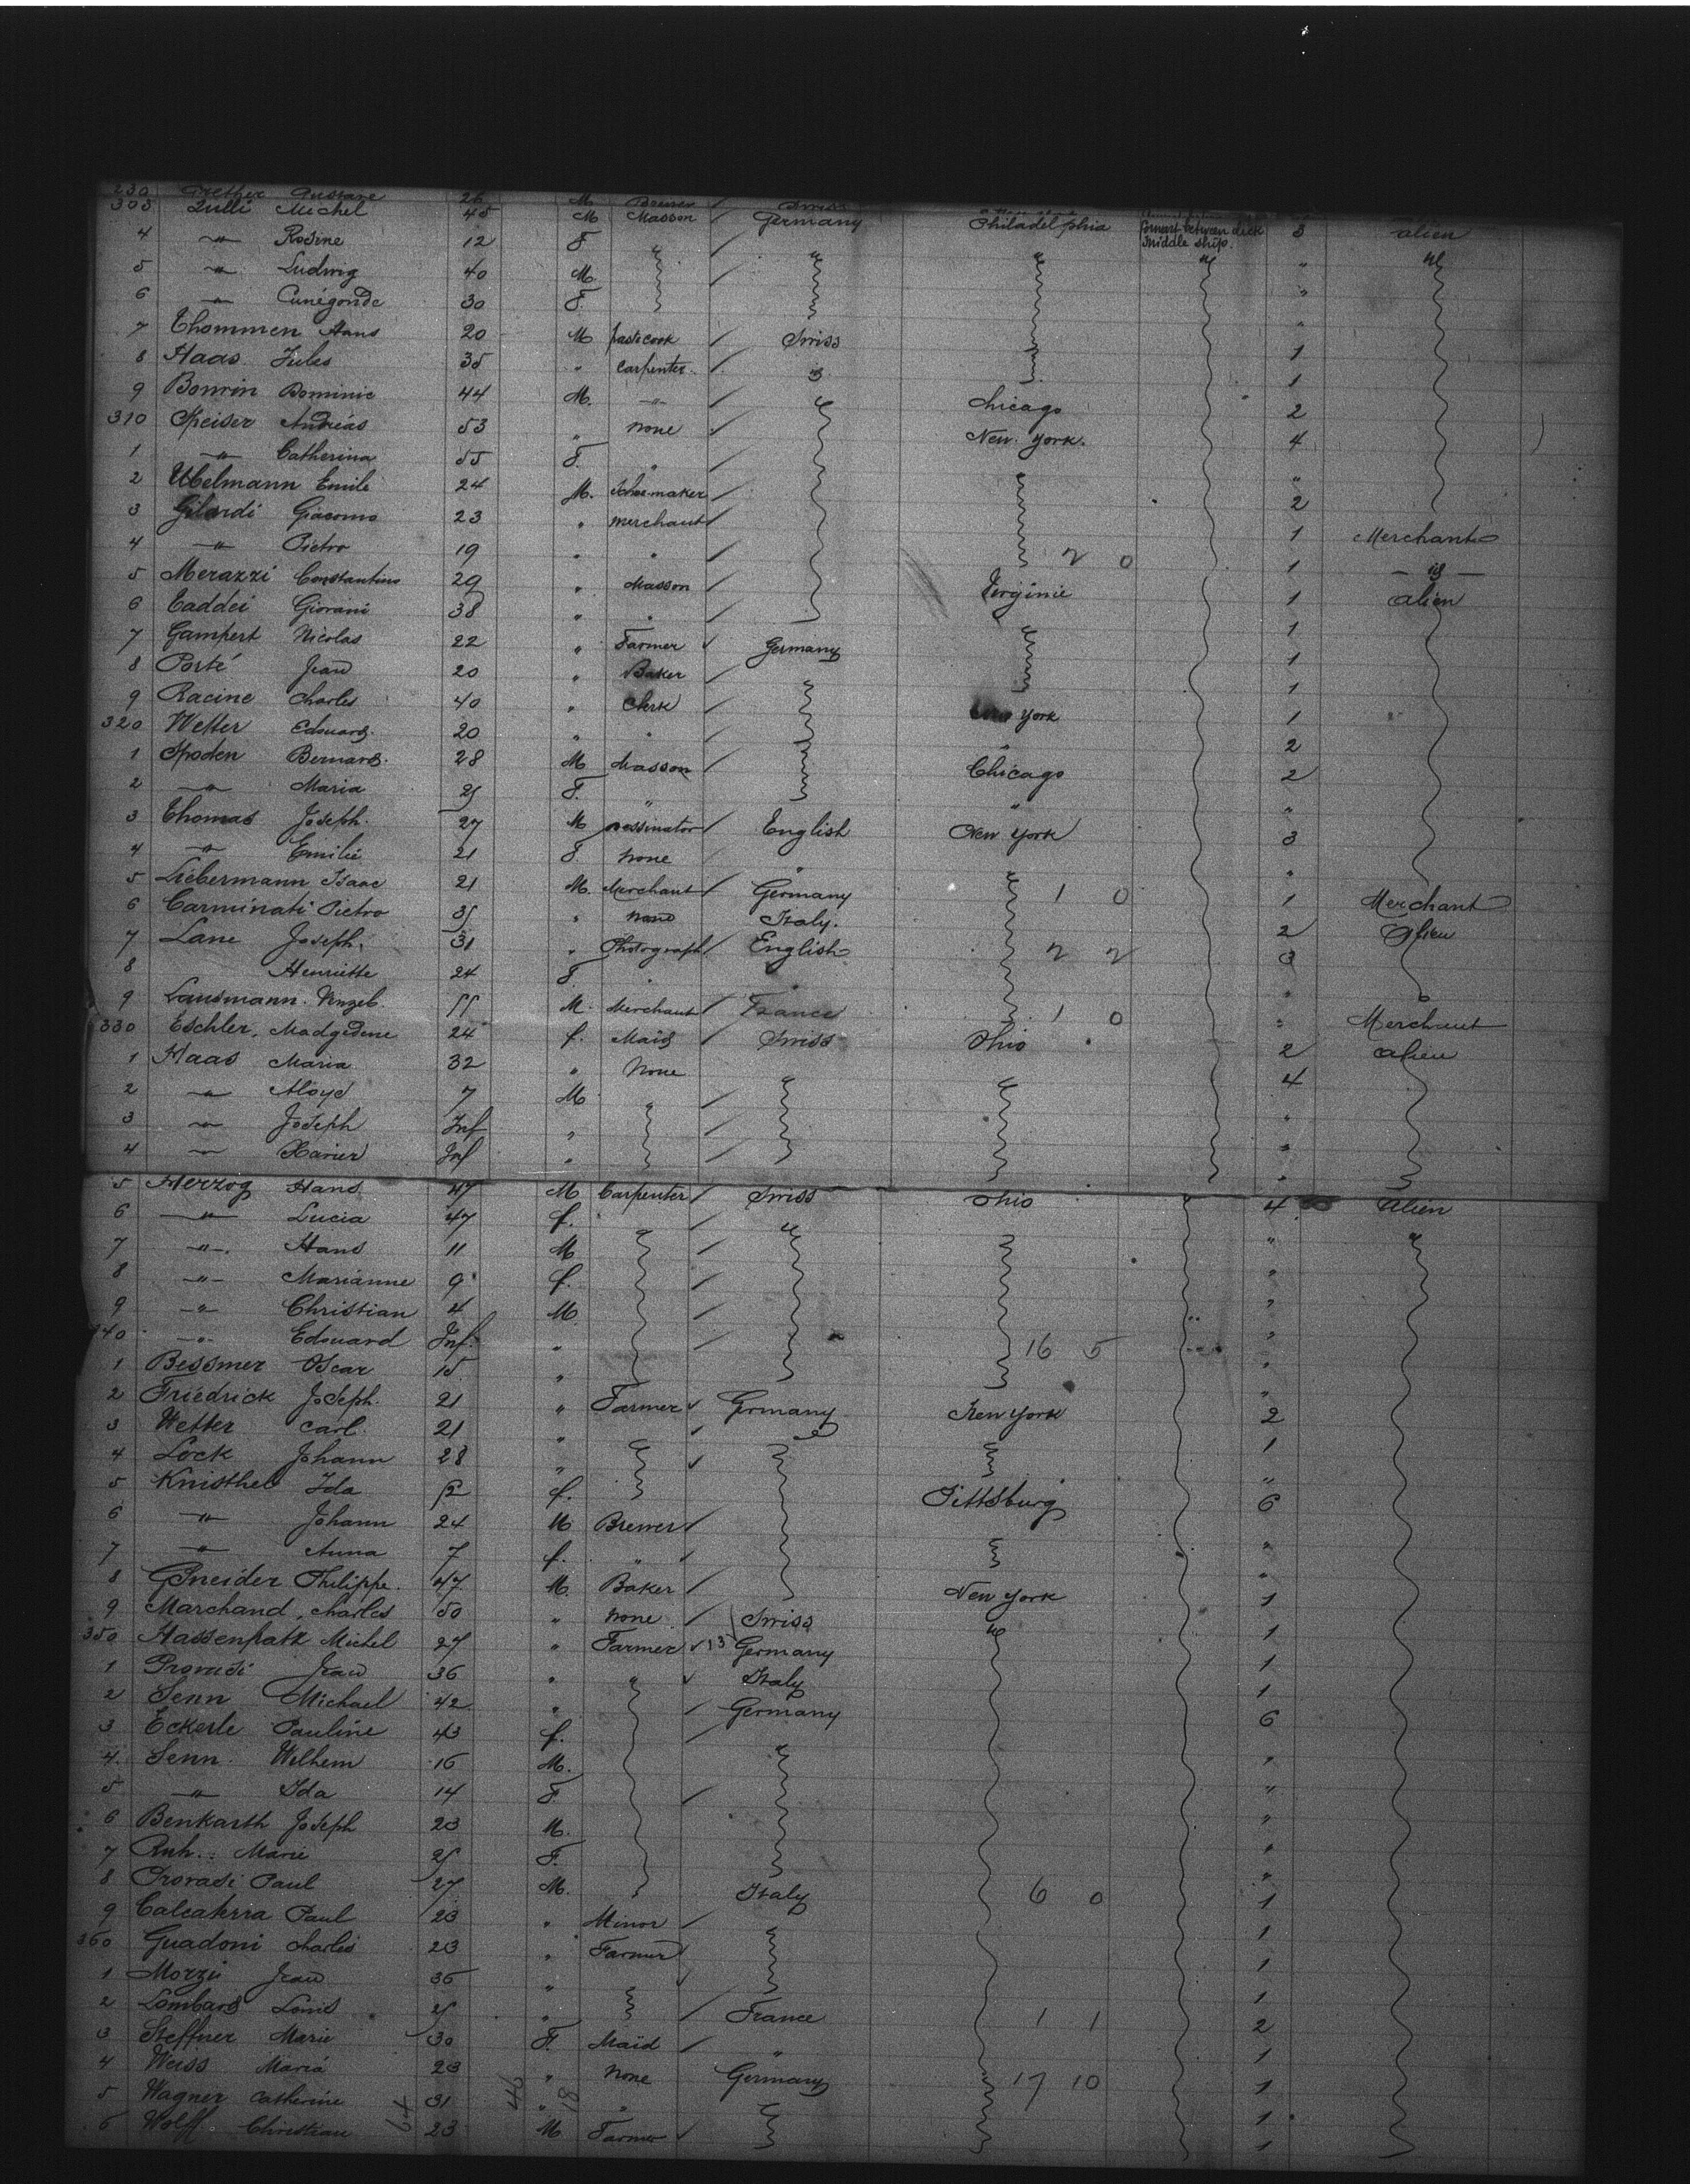 230 Gustave 26 M Brewer / Swiss
303 Zulli Michel 45 M Masson / Germany Philadelphia Forward between deck middle ship. 3 alien
4 —"— Rosine 12 F / "
5 —"— Ludwig 40 M. / "
6 —"— Cunégonde 30 F. "
7 Thommen Hans 20 M pastecook / Swiss 1
8 Haas Jules 35 " Carpenter / 1
9 Bonvin Dominic 44 M. —"— / Chicago 2
310 Speiser Andréas 53 " None / New York. 4
1 —"— Catherina 55 F. " / "
2 Ubelmann Emile 24 M. Shoe-maker / 2
3 Gilardi Giacomo 23 " merchant / 1 Merchant
4 —"— Pietro 19 " " / 2 0 1 — id —
5 Merazzi Constantino 29 " Masson / Virginie 1 alien
6 Taddei Giovani 38 " " / 1
7 Gampert Nicolas 22 " Farmer √ Germany 1
8 Porté Jean 20 " Baker / 1
9 Racine Charles 40 " Clerk / New York 1
320 Wetter Edouard. 20 " " / " 2
1 Spoden Bernard. 28 M Masson / Chicago 2
2 —"— Maria 25 F. " " "
3 Thomas Joseph. 27 M / English New York 3
4 —"— Emilie 21 F. None / " "
5 Liebermann Isaac 21 M. Merchant / Germany 1 0 1 Merchant
6 Carminati Pietro 35 " None Italy. 2 Alien
7 Lane Joseph. 31 " Photograph / English 2 2 3
8 Henriette 24 F " " "
9 Lausmann 55 M. Merchant / France 1 0 " Merchant
330 Eschler, Madgedene 24 f. Maid / Swiss Ohio 2 alien
1 Haas Maria 32 " None 4
2 —"— Aloyd 7 M " / "
3 —"— Joseph Inf " / "
4 —"— Xavier Inf " / "
5 Herzog Hans 47 M Carpenter / Swiss Ohio 4 Alien
6 —"— Lucia 47 f. / "
7 —"—. Hans 11 M / "
8 —"— Marianne 9 f. / "
9 —"— Christian 4 M. / "
340 —"— Edouard Inf. " / 16 5 "
1 Bessmer Oscar 15 " "
2 Friedrick Joseph. 21 " Farmer √ Germany New York 2
3 Wetter Carl. 21 " √ 1
4 Lock Johann 28 " √ "
5 Knisthel Ida 52 f. Pittsburg 6
6 —"— Johann 24 M Brewer / "
7 —"— Anna 7 f. " √ "
8 Gsneider Philippe. 47 M. Baker / New York 1
9 Marchand, Charles 50 " None / Swiss 1
350 Hassenfratz Michel 27 " Farmer √ 13 Germany 1
1 Provasi Jean 36 " " √ Italy 1
2 Senn Michael 42 " / Germany 6
3 Eckerle Pauline 43 f. / "
4. Senn. Wilhem 16 M. "
5 —"— Ida 14 F. / "
6 Benkarth Joseph 23 M. "
7 Marie 25 F. "
8 Provasi Paul 27 M. Italy 6 0 1
9 Calcaterra Paul 23 " Minor / 1
360 Guadoni Charles 23 " Farmer √ 1
1 Morzi Jean 36 " √ 1
2 Lombard Louis 25 " / France 1 1 2
3 Steffner Marie 30 F. Maid / " 1
4 Weiss Maria 23 " None Germany 17 10 1
5 Wagner Catherine 31 " " 1
6 Wolff. Christian 23 M Farmer √ 1
64 46 18